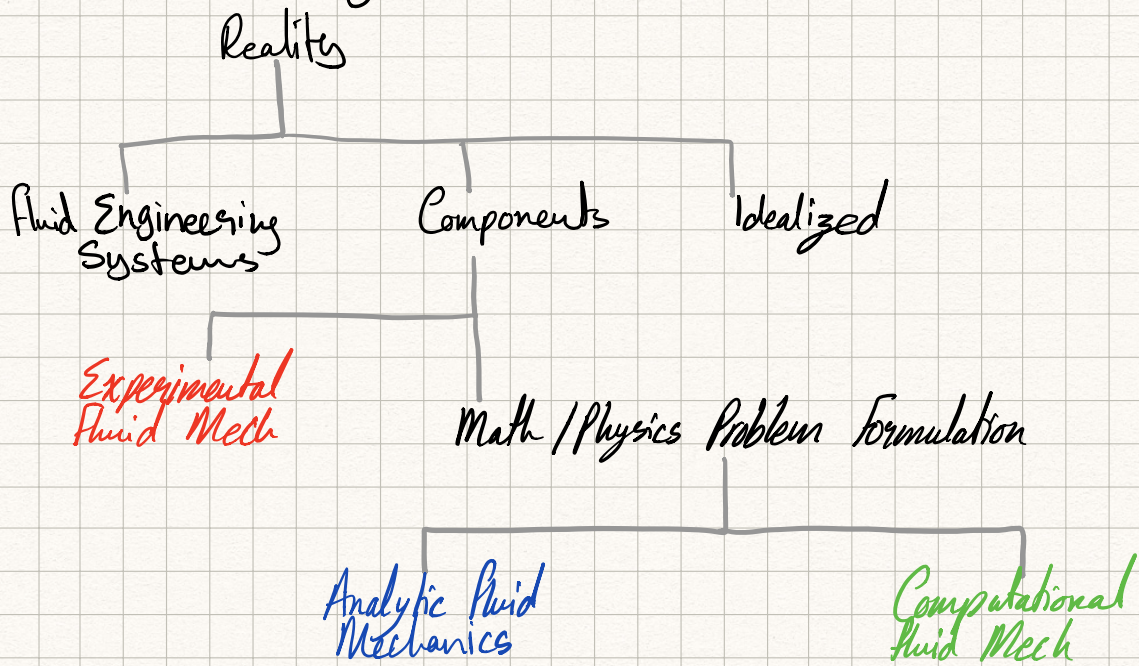 Reality
Fluid Engineering Components Idealized
Systems
Experimental
Fluid Mech
Math/Physics Problem Formulation
Analytic Fluid
Mechanics
Computational
Fluid Mech